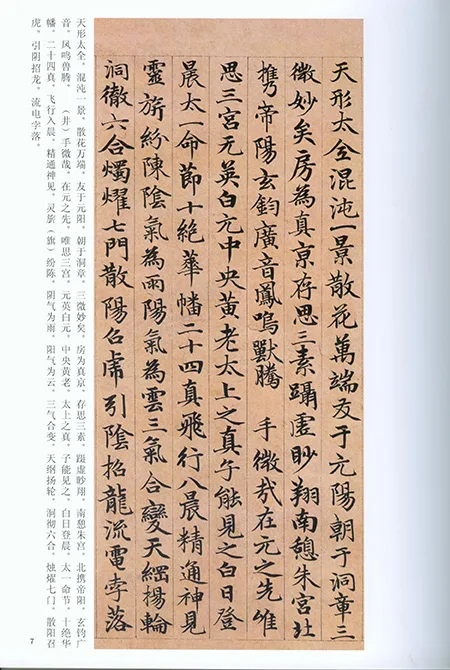 天形太全混沌一景散花萬端友于元陽朝于洞章三
微妙矣房為真京存思三素躡虛眇翔南憩朱宮北
攜帝陽玄鈞廣音鳳鳴獸騰 手微哉在元之先唯
思三宮元英白元中央黃老太上之真子能見之白日登
晨太一命節十絕華幡二十四真飛行八晨精通神見
靈旂紛陳陰氣為雨陽氣為雲三氣合變天綱揚輪
洞徹六合燭燿七門散陽召虎引陰招龍流電孛落
天形太全，混沌一景，散花万端，友于元阳，朝于洞章，三微妙矣，房为真京，存思三素，蹑虚眇翔，南憩朱宫，北携帝阳，玄钧广
音，凤鸣兽腾，（井）手微哉，在元之先，唯思三宫，元英白元，中央黄老，太上之真，子能见之，白日登晨，太一命节，十绝华
幡，二十四真，飞行八晨，精通神见，灵旂（旗）纷陈，阴气为雨，阳气为云，三气合变，天纲扬轮，洞彻六合，烛耀七门，散阳召
虎，引阴招龙，流电孛落。
7